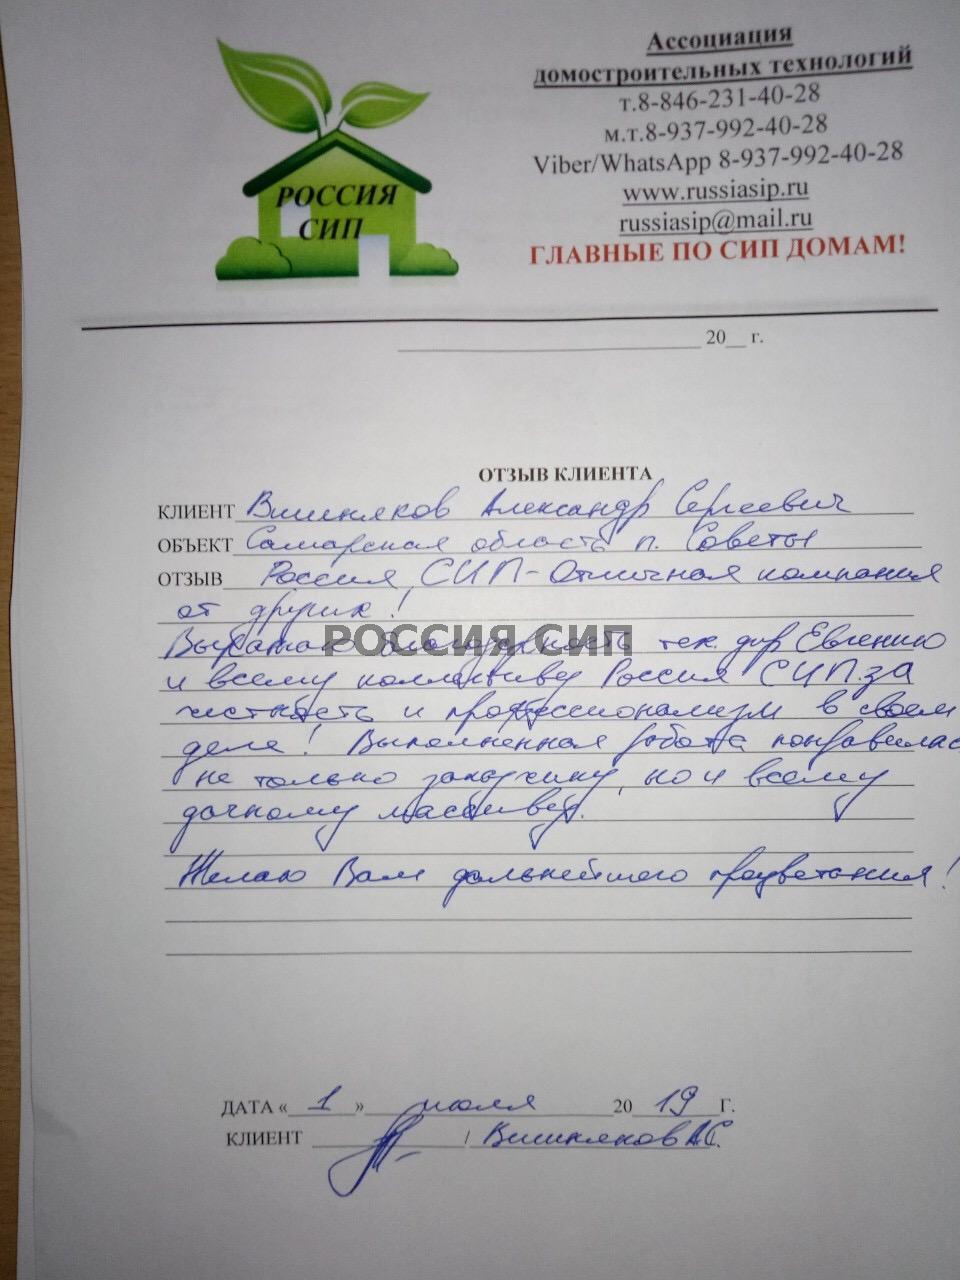 РОССИЯ
СИП
Ассоциация
домостроительных технологий
т.8-846-231-40-28
м.т.8-937-992-40-28
Viber/WhatsApp 8-937-992-40-28
www.russiasip.ru
russiasip@mail.ru
ГЛАВНЫЕ ПО СИП ДОМАМ!
20__ г.
ОТЗЫВ КЛИЕНТА
КЛИЕНТ Вишняков Александр Сергеевич
ОБЪЕКТ Самарская область п. Советы
ОТЗЫВ Россия СИП - Отличная компания
от других!
РОССИЯ СИП
Выражаю благодарность тех. дир Евгению
и всему коллективу Россия СИП за
честность и профессионализм в своем
деле! Выполненная работа понравилас
не только заказчику, но и всему
дачному массиву.
Желаю Вам дальнейшего процветания!
ДАТА « 1 » июля 20 19 Г.
КЛИЕНТ / Вишняков А.С.